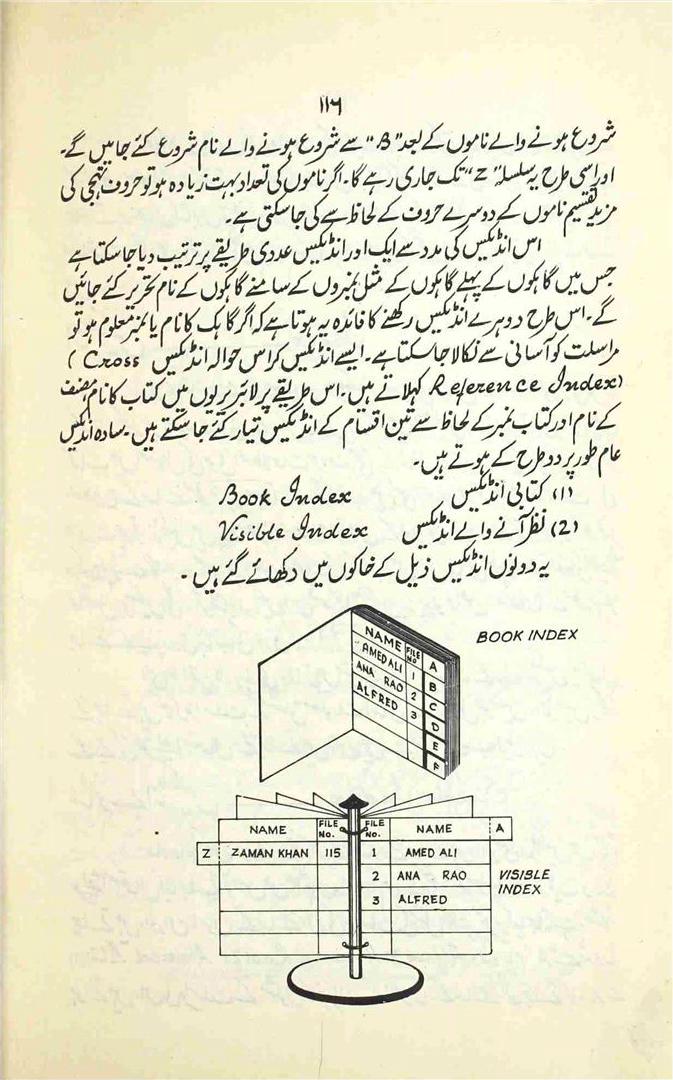 ۱۱۶
شروع ہونے والے ناموں کے بعد "B" سے شروع ہونے والے نام شروع کئے جائیں گے۔
اور اسی طرح یہ سلسلہ "Z" تک جاری رہے گا۔ اگر ناموں کی تعداد بہت زیادہ ہو تو حروف تہجی کی
مزید تقسیم ناموں کے دوسرے حروف کے لحاظ سے کی جا سکتی ہے۔
اس انڈیکس کی مدد سے ایک اور انڈیکس عددی طریقے پر ترتیب دیا جا سکتا ہے
جس میں گاہکوں کے پہلے گاہکوں کے مثل نمبروں کے سامنے گاہکوں کے نام تحریر کئے جائیں
گے۔ اس طرح دوہرے انڈیکس رکھنے کا فائدہ یہ ہوتا ہے کہ اگر گاہک کا نام یا نمبر معلوم ہو تو
مراسلت کو آسانی سے نکالا جا سکتا ہے۔ ایسے انڈیکس کراس حوالہ انڈیکس (Cross
Reference Index) کہلاتے ہیں۔ اس طریقے پر لائبریریوں میں کتاب کا نام، مصنف
کے نام اور کتاب نمبر کے لحاظ سے تین اقسام کے انڈیکس تیار کئے جا سکتے ہیں۔ سادہ انڈیکس
عام طور پر دو طرح کے ہوتے ہیں۔
(1) کتابی انڈیکس Book Index
(2) نظر آنے والے انڈیکس Visible Index
یہ دونوں انڈیکس ذیل کے خاکوں میں دکھائے گئے ہیں۔
BOOK INDEX
NAME FILE NO A
AMED ALI 1 B
ANA RAO 2 C
ALFRED 3 D
E
F
NAME FILE No. FILE No. NAME A
Z ZAMAN KHAN 115 1 AMED ALI
2 ANA RAO
3 ALFRED
VISIBLE
INDEX